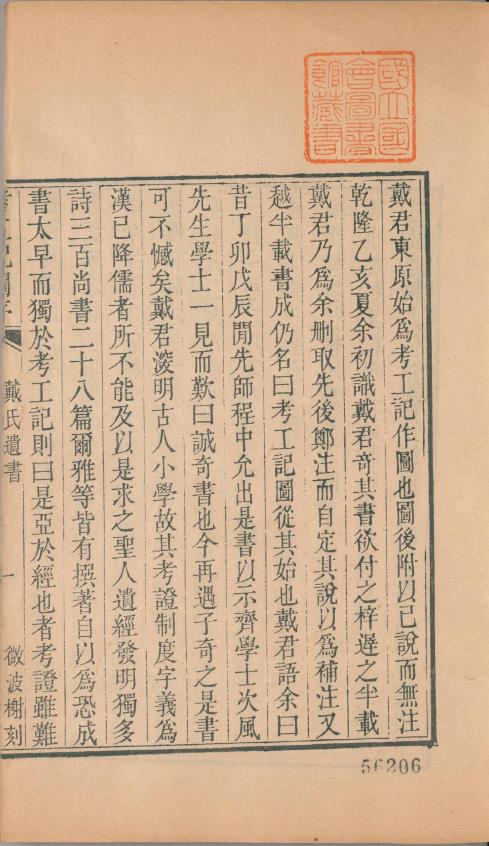 國立國
會圖書
館藏書
戴君東原始為考工記作圖也圖後附以己說而無注
乾隆乙亥夏余初識戴君奇其書欲付之梓遲之半載
戴君乃為余刪取先後鄭注而自定其說以為補注又
越半載書成仍名曰考工記圖從其始也戴君語余曰
昔丁卯戊辰閒先師程中允出是書以示齊學士次風
先生學士一見而歎曰誠奇書也今再遇子奇之是書
可不憾矣戴君深明古人小學故其考證制度字義為
漢已降儒者所不能及以是求之聖人遺經發明獨多
詩三百尚書二十八篇爾雅等皆有撰著自以為恐成
書太早而獨於考工記則曰是亞於經也者考證雖難
考工記圖序 戴氏遺書 一 微波榭刻
56206